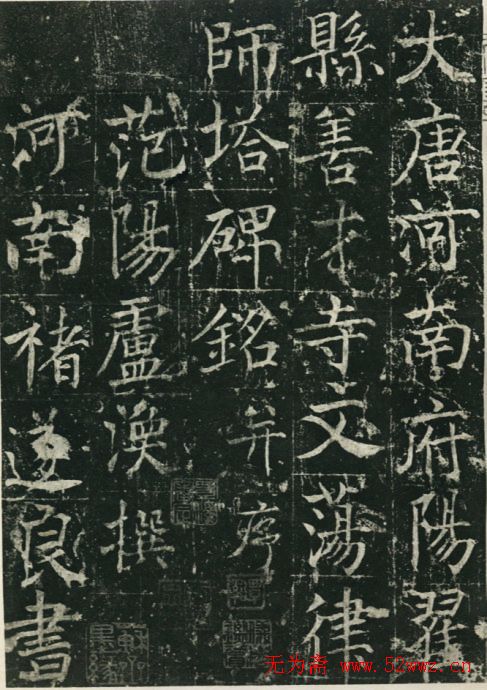 大唐河南府陽翟
縣善才寺文蕩律
師塔碑銘并序
范陽盧渙撰
河南褚遂良書
无为斋 www.52wwz.cn